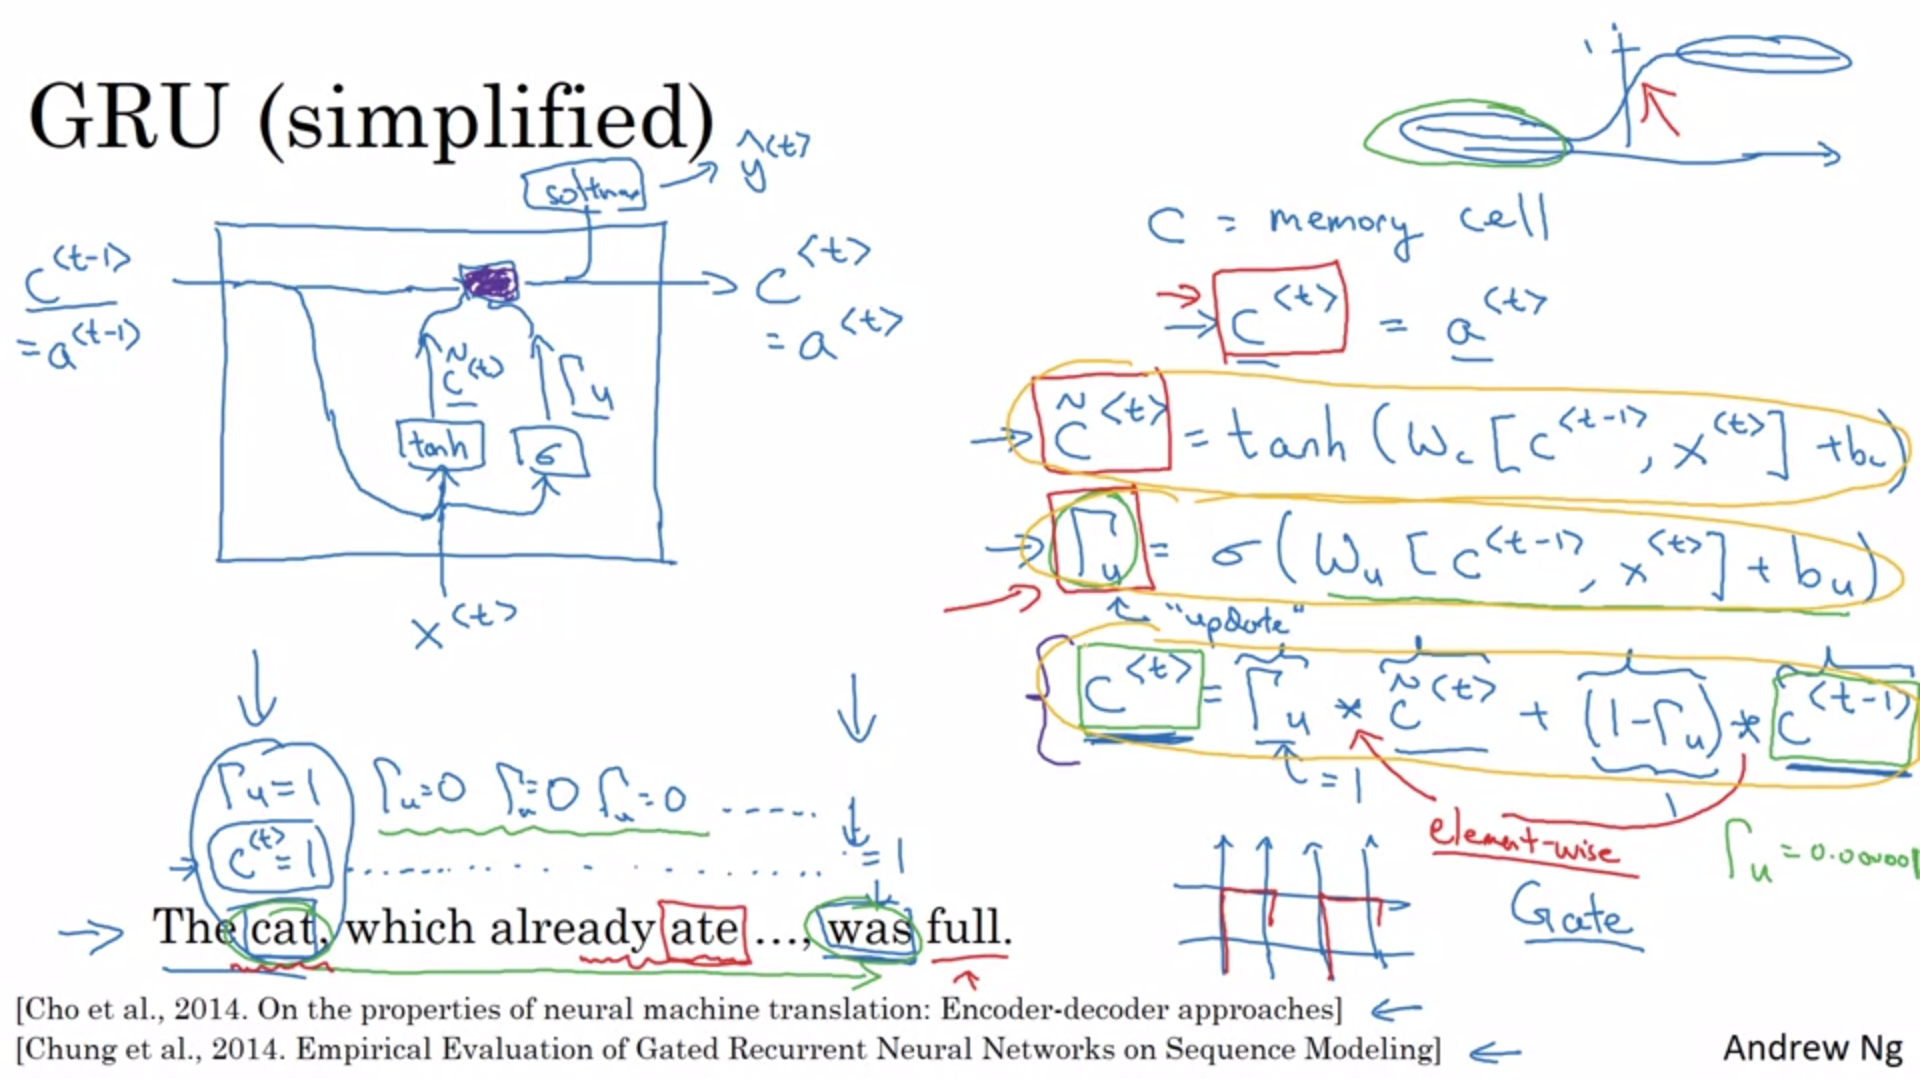 GRU (simplified)
softmax
ŷ<t>
c<t-1>
= a<t-1>
c<t>
= a<t>
c̃<t>
Γu
tanh
σ
x<t>
1
C = memory cell
c<t> = a<t>
c̃<t> = tanh (Wc [c<t-1>, x<t>] + bc)
Γu = σ (Wu [c<t-1>, x<t>] + bu)
"update"
c<t> = Γu * c̃<t> + (1-Γu) * c<t-1>
= 1
1
element-wise
Γu = 0.000001
Gate
Γu=1 Γu=0 Γu=0 Γu=0 -----..
c<t>=1 ............ = 1
The cat, which already ate ..., was full.
[Cho et al., 2014. On the properties of neural machine translation: Encoder-decoder approaches]
[Chung et al., 2014. Empirical Evaluation of Gated Recurrent Neural Networks on Sequence Modeling]
Andrew Ng